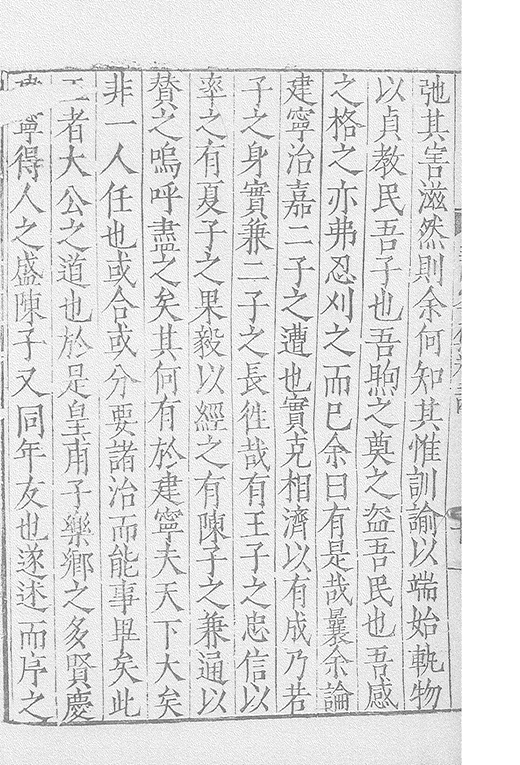 弛其害滋然則余何知其惟訓諭以端始軌物
以貞教民吾子也吾煦之奠之盗吾民也吾感
之格之亦弗忍刈之而已余曰有是哉曩余論
建寧治嘉二子之遭也實克相濟以有成乃若
子之身實兼二子之長徃哉有王子之忠信以
率之有夏子之果毅以經之有陳子之兼通以
賛之嗚呼盡之矣其何有於建寧夫天下大矣
非一人任也或合或分要諸治而能事畢矣此
者大公之道也於是皇甫子樂鄉之多賢慶
寧得人之盛陳子又同年友也遂述而序之